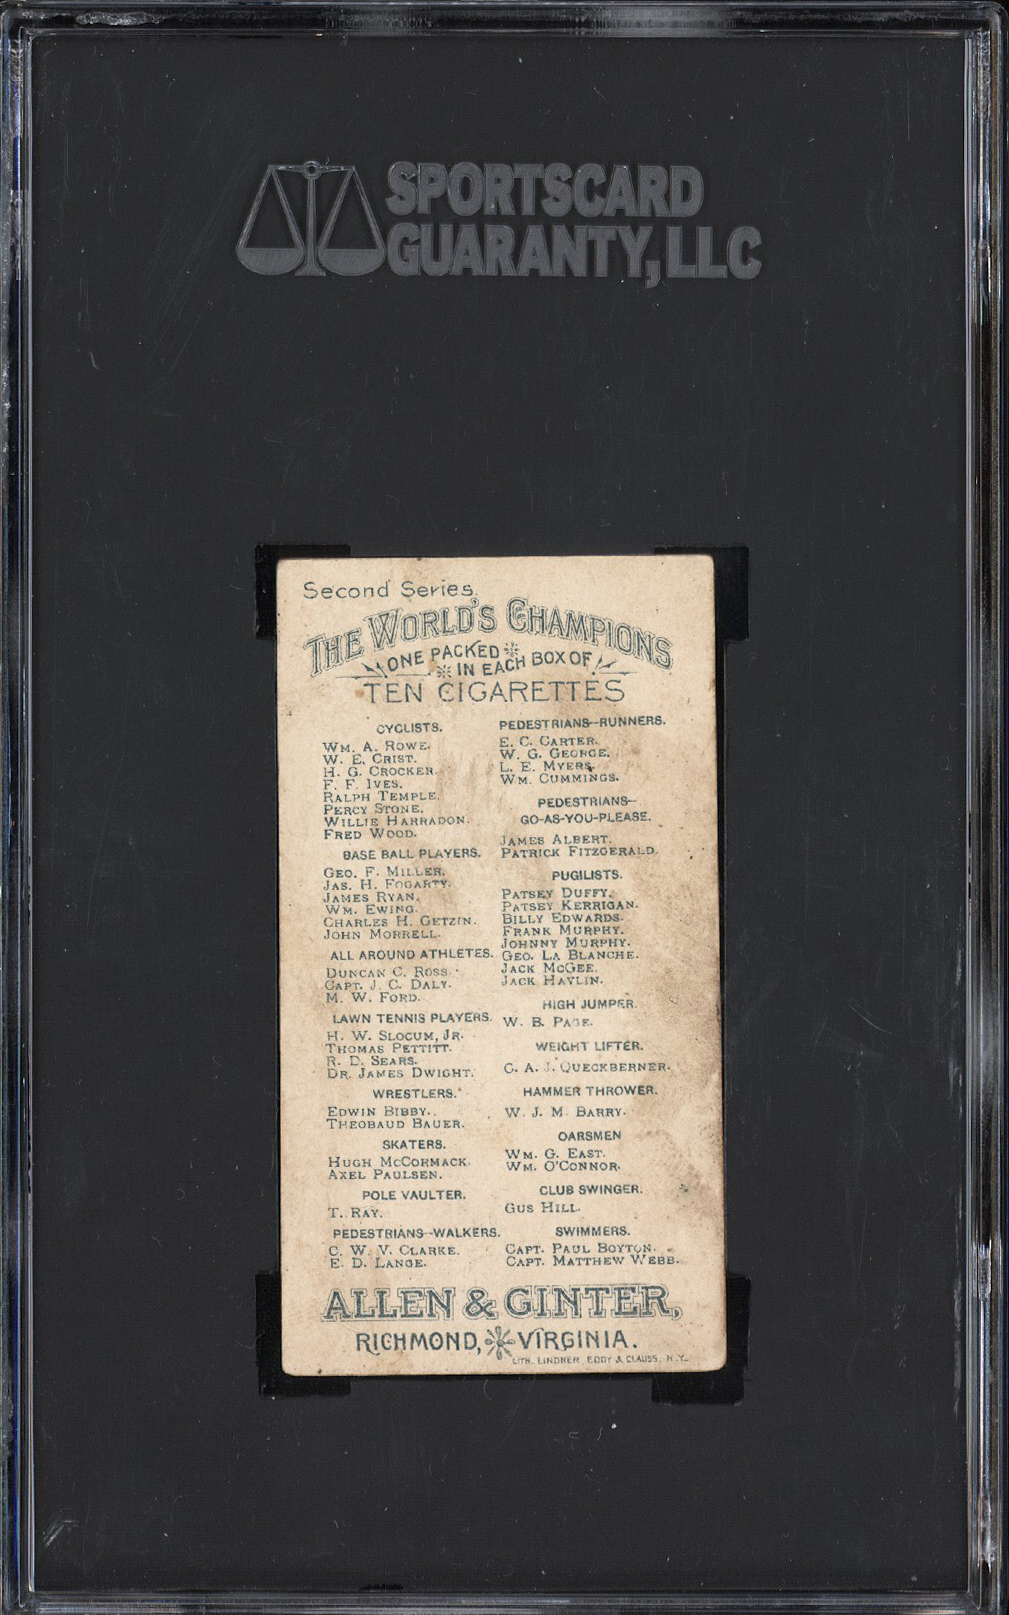 SPORTSCARD
GUARANTY, LLC
Second Series.
THE WORLD'S CHAMPIONS
ONE PACKED
IN EACH BOX OF
TEN CIGARETTES
CYCLISTS.
WM. A. ROWE.
W. E. CRIST.
H. G. CROCKER
F. F. IVES.
RALPH TEMPLE.
PERCY STONE.
WILLIE HARRADON.
FRED WOOD.
BASE BALL PLAYERS.
GEO. F. MILLER.
JAS. H. FOGARTY.
JAMES RYAN.
WM. EWING.
CHARLES H. GETZIN.
JOHN MORRELL.
ALL AROUND ATHLETES.
DUNCAN C. ROSS.
CAPT. J. C. DALY.
M. W. FORD.
LAWN TENNIS PLAYERS.
H. W. SLOCUM, JR.
THOMAS PETTITT.
R. D. SEARS.
DR. JAMES DWIGHT.
WRESTLERS.
EDWIN BIBBY.
THEOBAUD BAUER.
SKATERS.
HUGH MCCORMACK.
AXEL PAULSEN.
POLE VAULTER.
T. RAY.
PEDESTRIANS--WALKERS.
C. W. V. CLARKE.
E. D. LANGE.
PEDESTRIANS--RUNNERS.
E. C. CARTER.
W. G. GEORGE.
L. E. MYERS.
WM. CUMMINGS.
PEDESTRIANS--
GO-AS-YOU-PLEASE.
JAMES ALBERT.
PATRICK FITZGERALD.
PUGILISTS.
PATSEY DUFFY.
PATSEY KERRIGAN.
BILLY EDWARDS.
FRANK MURPHY.
JOHNNY MURPHY.
GEO. LA BLANCHE.
JACK MCGEE.
JACK HAVLIN.
HIGH JUMPER.
W. B. PAGE.
WEIGHT LIFTER.
C. A. J. QUECKBERNER.
HAMMER THROWER.
W. J. M. BARRY.
OARSMEN
WM. G. EAST.
WM. O'CONNOR.
CLUB SWINGER.
GUS HILL.
SWIMMERS.
CAPT. PAUL BOYTON.
CAPT. MATTHEW WEBB.
ALLEN & GINTER,
RICHMOND, VIRGINIA.
LITH. LINDNER, EDDY & CLAUSS, N.Y.